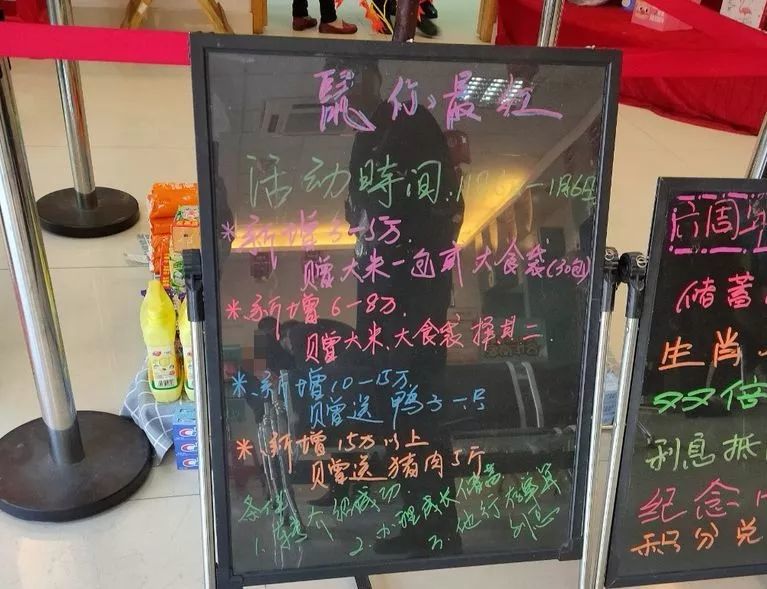 鼠你最红
活动時间:1月3日-1月6日
*新增3-5万
贈大米一包或大食袋(30包)
*新增6-8万
贝曾大米、大食袋 择其二.
*新增10-15万
贝曾送鸭子一只
*新增15万以上
贝曾送猪肉5斤
条件
1.转介绍成功. 2.办理成长储蓄 3.他行
利息
周年
储蓄
生肖
双倍
利息抵
纪念
积分兑